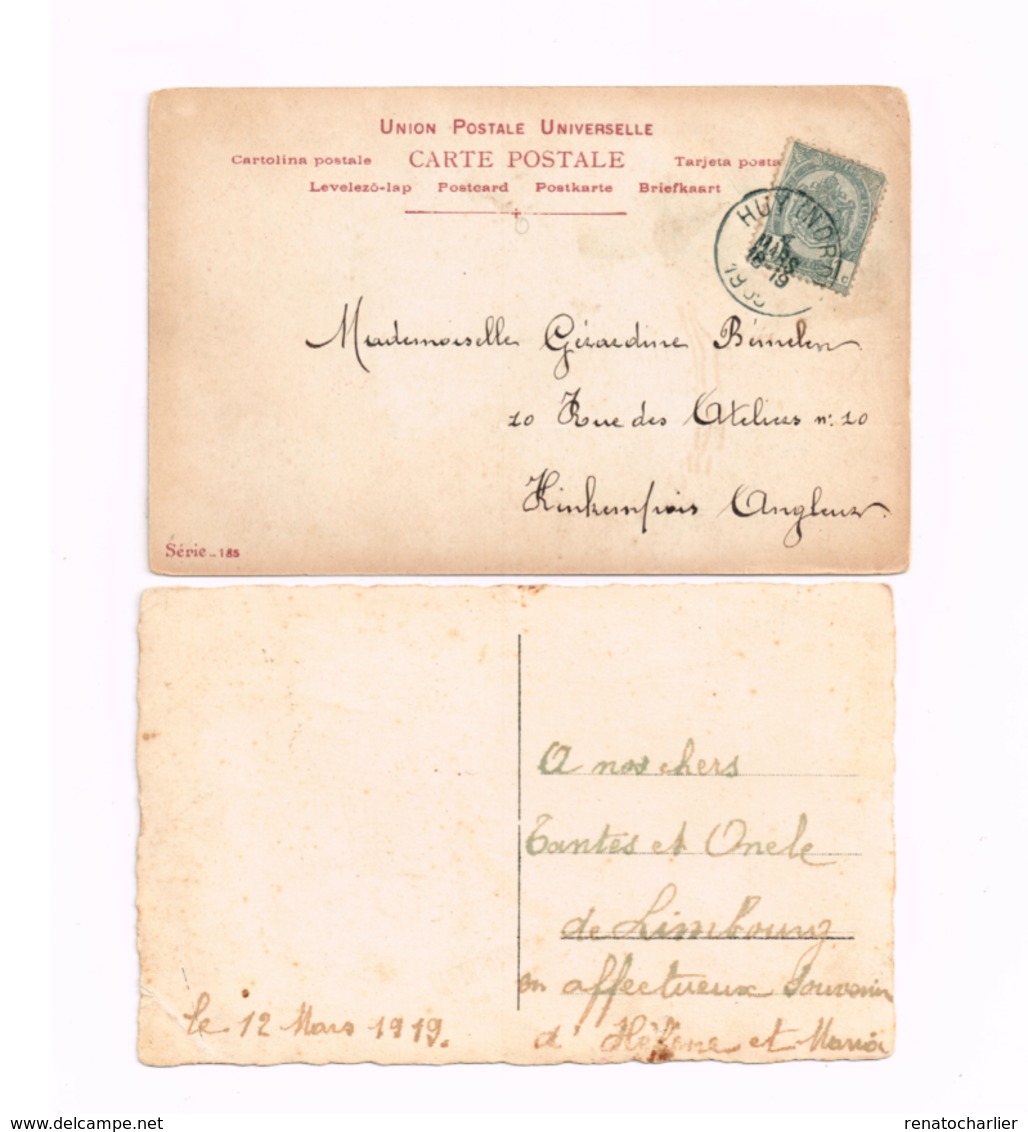 UNION POSTALE UNIVERSELLE
Cartolina postale CARTE POSTALE Tarjeta posta
Levelező-lap Postcard Postkarte Briefkaart
HUY (NORD)
4
MARS
18-19
1c
Mademoiselle Gérardine Bémelen
10 Rue des Atelices n: 10
Kinkempois Angleur.
Série _ 185
A nos chers
Tantes et Oncle
de Limbourg
en affectueux Souvenir
d' Hélène et Maria
le 12 Mars 1919.
renatocharlier